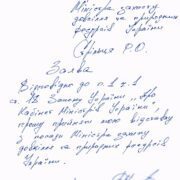 Міністра захисту
довкілля та природних
ресурсів України
Стрільця Р.О.
Заява
Відповідно до п.1 ч.1
ст. 18 Закону України „Про
Кабінет Міністрів України",
прошу прийняти мою відставку
з посади Міністра захисту
довкілля та природних ресурсів
України.